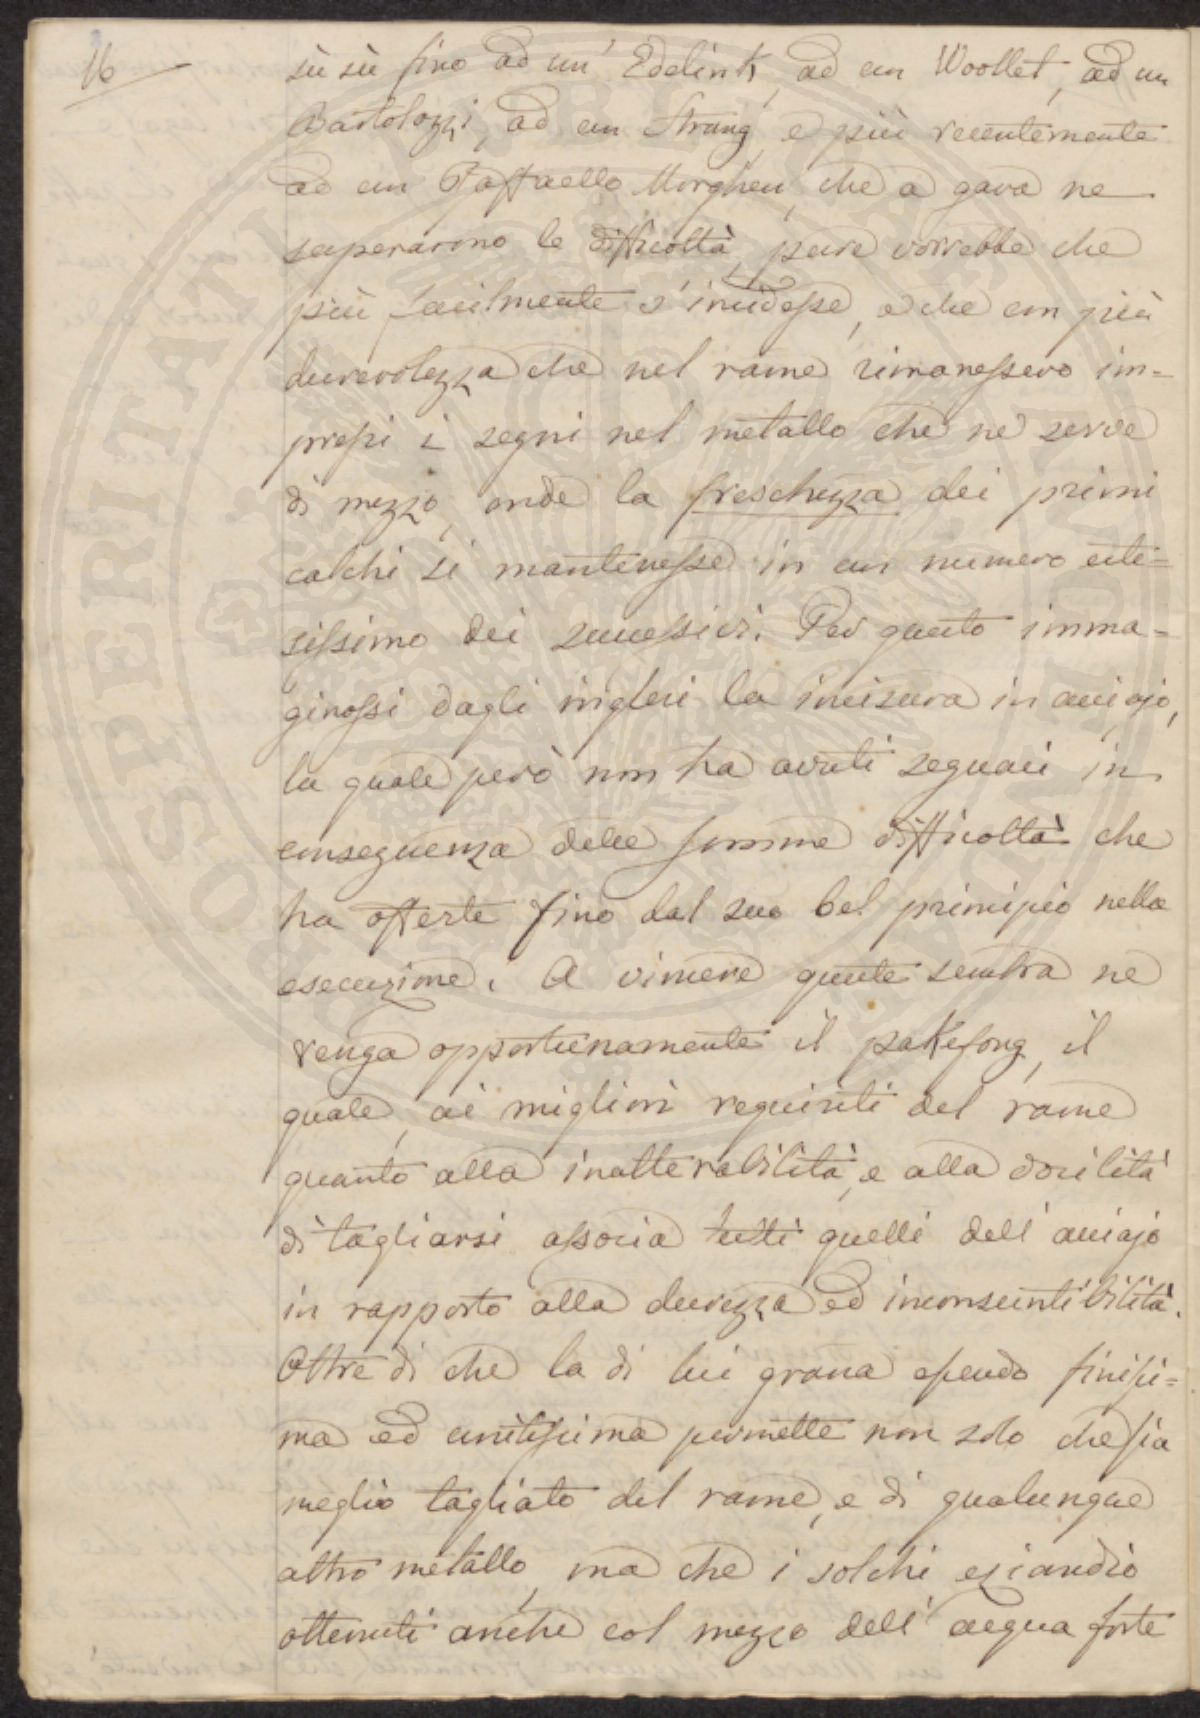 16
sù sù fino ad un' Edelink, ad un Woollet, ad un
Bartolozzi, ad un Strang, e più recentemente
ad un Raffaello Morghen, che a gara ne
superarono le difficoltà, pure vorrebbe che
più facilmente s'incidesse, e che con più
durevolezza che nel rame rimanessero im=
pressi i segni nel metallo che ne serve
di mezzo, onde la freschezza dei primi
calchi si mantenesse in un numero este=
sissimo dei successivi. Per questo imma=
ginossi dagli inglesi la incisura in acciajo,
la quale però non ha avuti seguaci in
conseguenza delle somme difficoltà che
ha offerte fino dal suo bel principio nella
esecuzione. A vincere queste sembra ne
venga opportunamente il pakefong, il
quale, ai migliori requisiti del rame
quanto alla inalterabilità, e alla docilità
di tagliarsi associa tutti quelli dell'acciajo
in rapporto alla durezza ed inconsuntibilità.
Oltre di che la di lui grana essendo finissi=
ma ed unitissima permette non solo che sia
meglio tagliato del rame, e di qualunque
altro metallo, ma che i solchi eziandio
ottenuti anche col mezzo dell'acqua forte
PROSPERITATI PUBLICAE